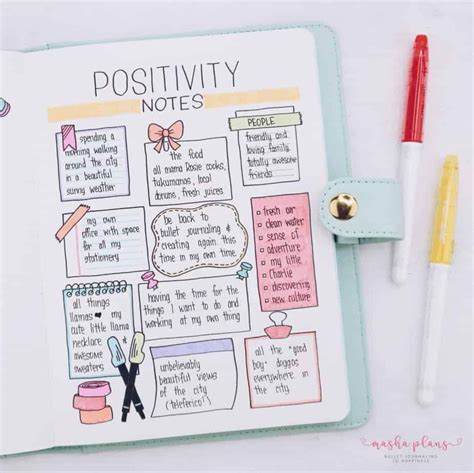 POSITIVITY
NOTES
spending a
morning walking
around the city
in a beautiful
sunny weather
the food
all mama Rosie cooks,
tukumanas, local
donuts, fresh juices
PEOPLE
friendly and
loving family,
totally awesome
friends
my own
office with space
for all my
stationery
be back to
bullet journaling &
creating again this
time in my own time.
fresh air
clean water
sense of
adventure
my little
Charlie
discovering
new culture
all things
llamas ♥ my
cute little llama
necklace
awesome
sweaters
having the time for
the things I want to do and
working at my own thing
unbelievably
beautiful views
of the city
(teleferico!)
all the "good
boy" doggos
everywhere in
the city
masha plans
BULLET JOURNALING
IS HAPPINESS